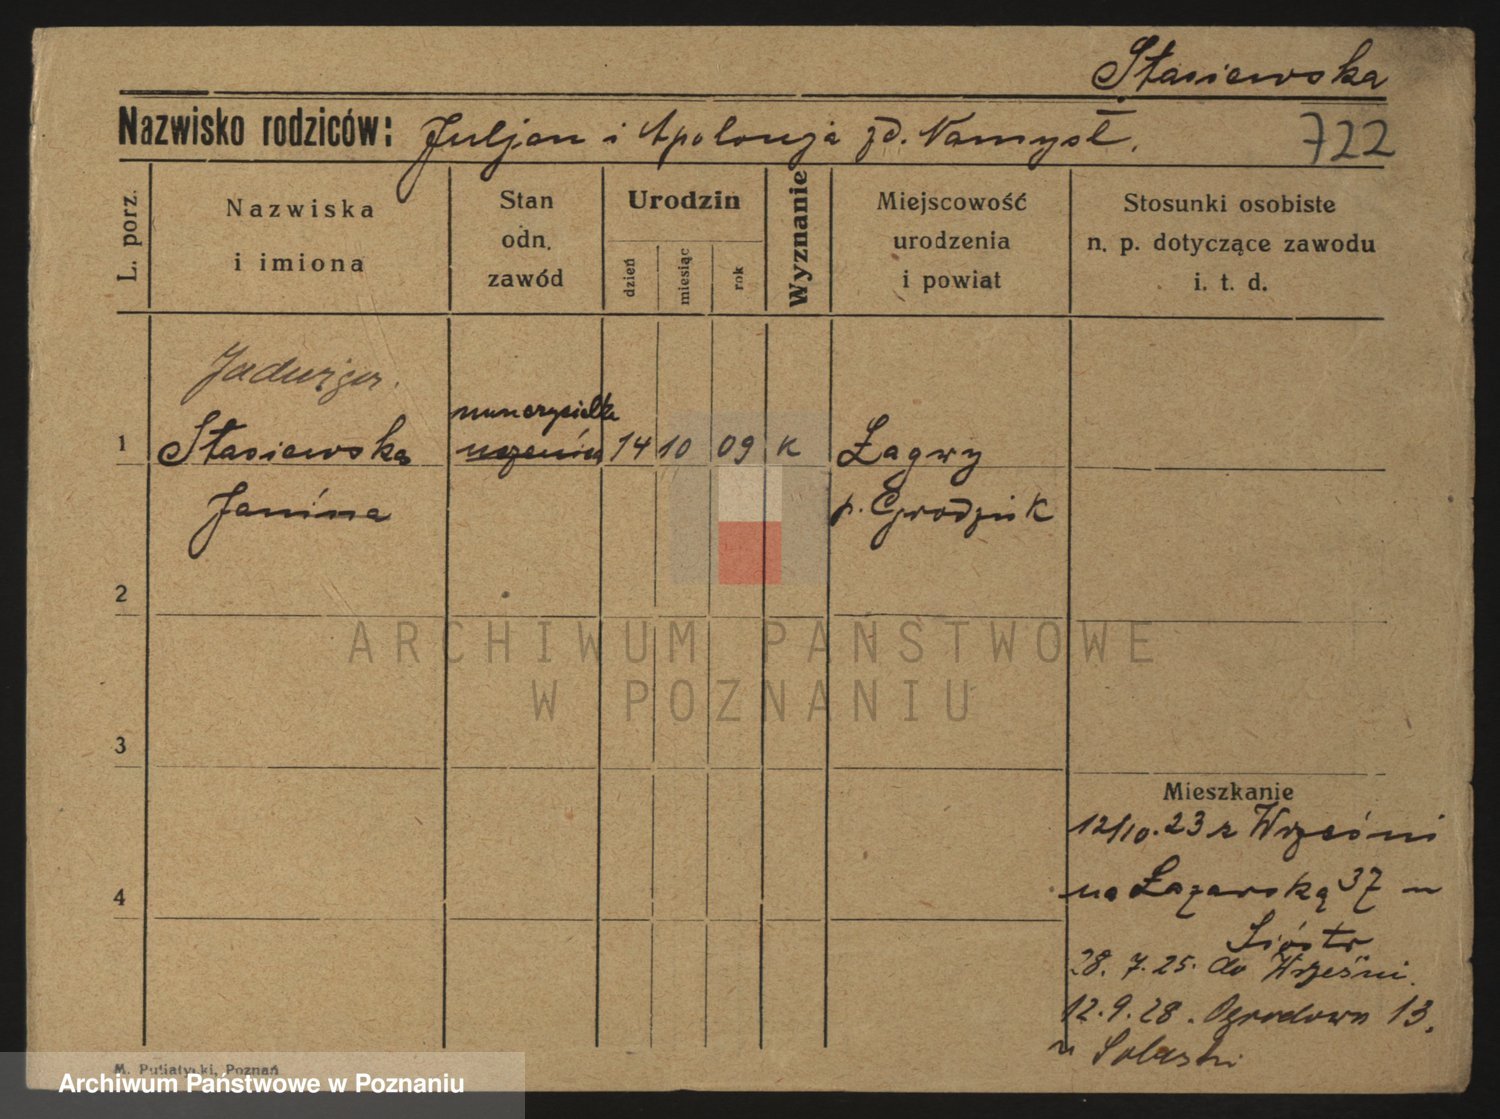 Stasiewska
Nazwisko rodziców: Juljan i Apolonja zd. Namysł.
722
L. porz.
Nazwiska
i imiona
Stan
odn.
zawód
Urodzin
dzień
miesiąc
rok
Wyznanie
Miejscowość
urodzenia
i powiat
Stosunki osobiste
n. p. dotyczące zawodu
i. t. d.
Jadwiga.
nauczycielka
1 Stasiewska uczenica 14 10 09 K Łagwy
Janina p. Grodzisk
2
ARCHIWUM PAŃSTWOWE
W POZNANIU
3
Mieszkanie
12/10.23 z Wrześni
na Łazarską 37 u
4
Sióstr
28. 7. 25. do Wrześni.
12. 9. 28. Ogrodowa 13.
u
M. Putiatycki, Poznań
Archiwum Państwowe w Poznaniu